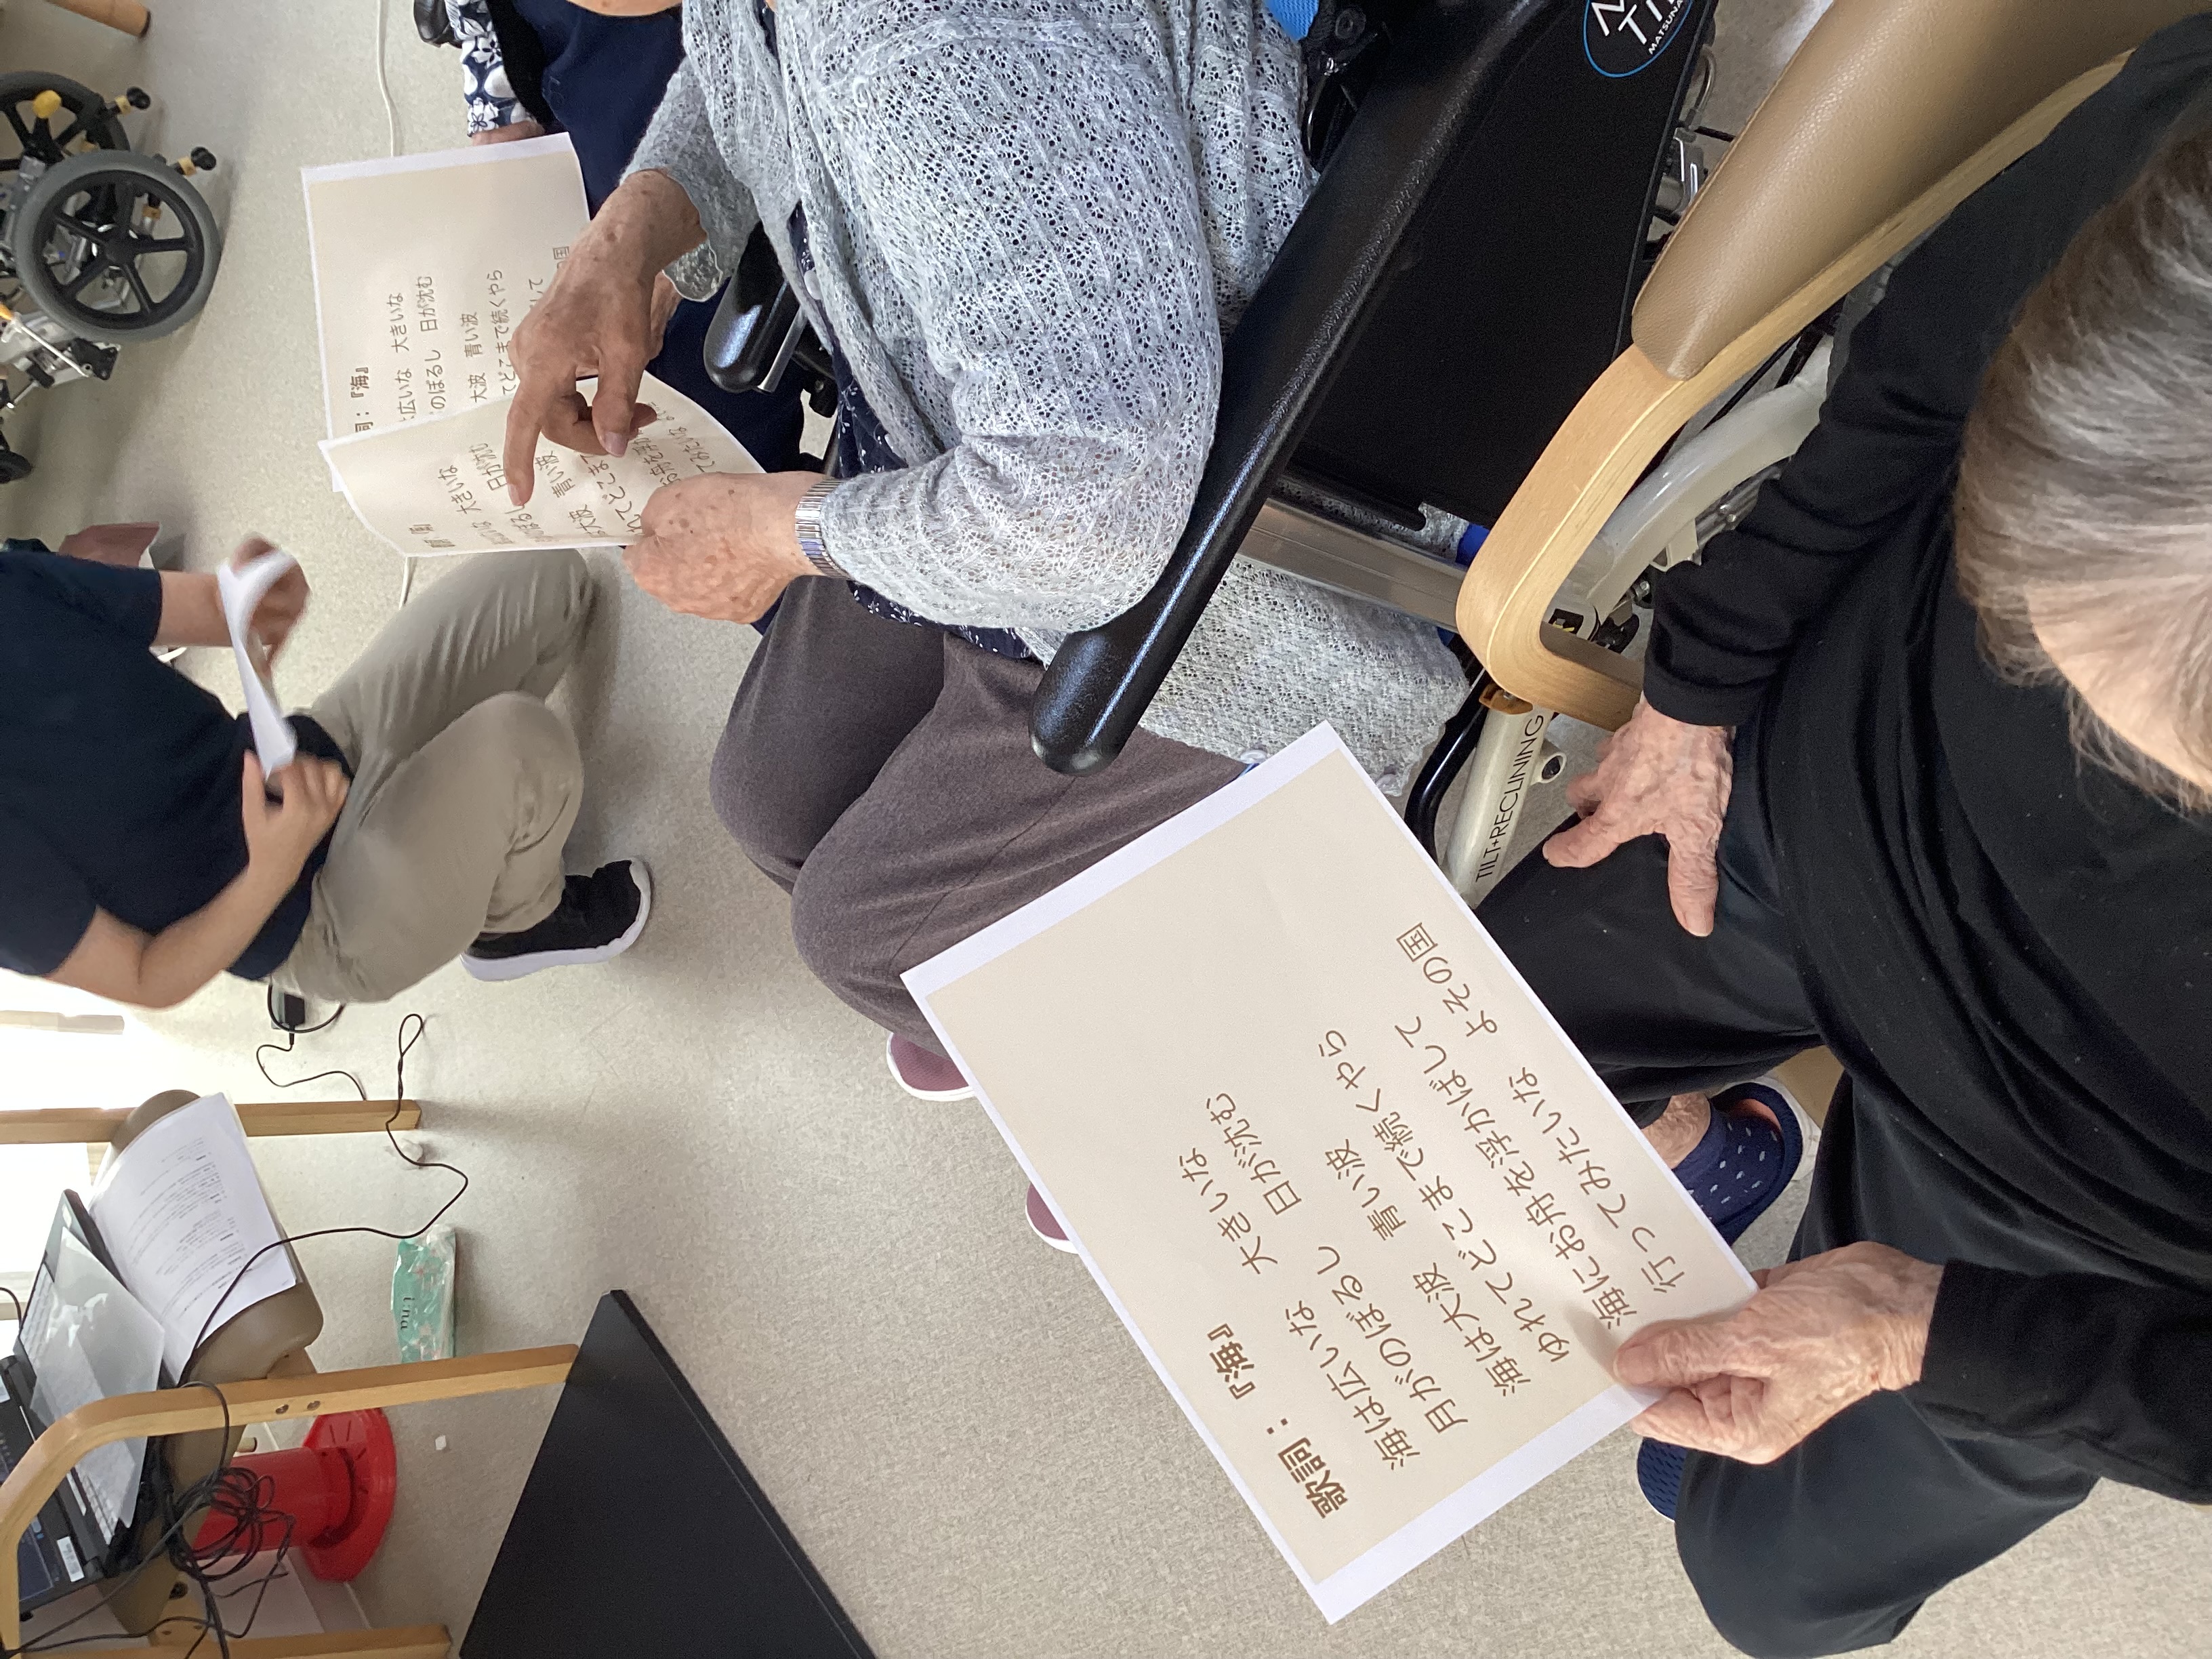 歌詞：『海』
海は広いな　大きいな
月がのぼるし　日が沈む
海は大波　青い波
ゆれてどこまで続くやら
海にお舟を浮かばして
行ってみたいな　よその国
詞：『海』
広いな　大きいな
のぼるし　日が沈む
大波　青い波
てどこまで続くやら
して
国
大きいな
日が沈む
大波　青い波
れてどこま
お舟を浮
てみたいな
TILT+RECLINING
MATSUNA
Una